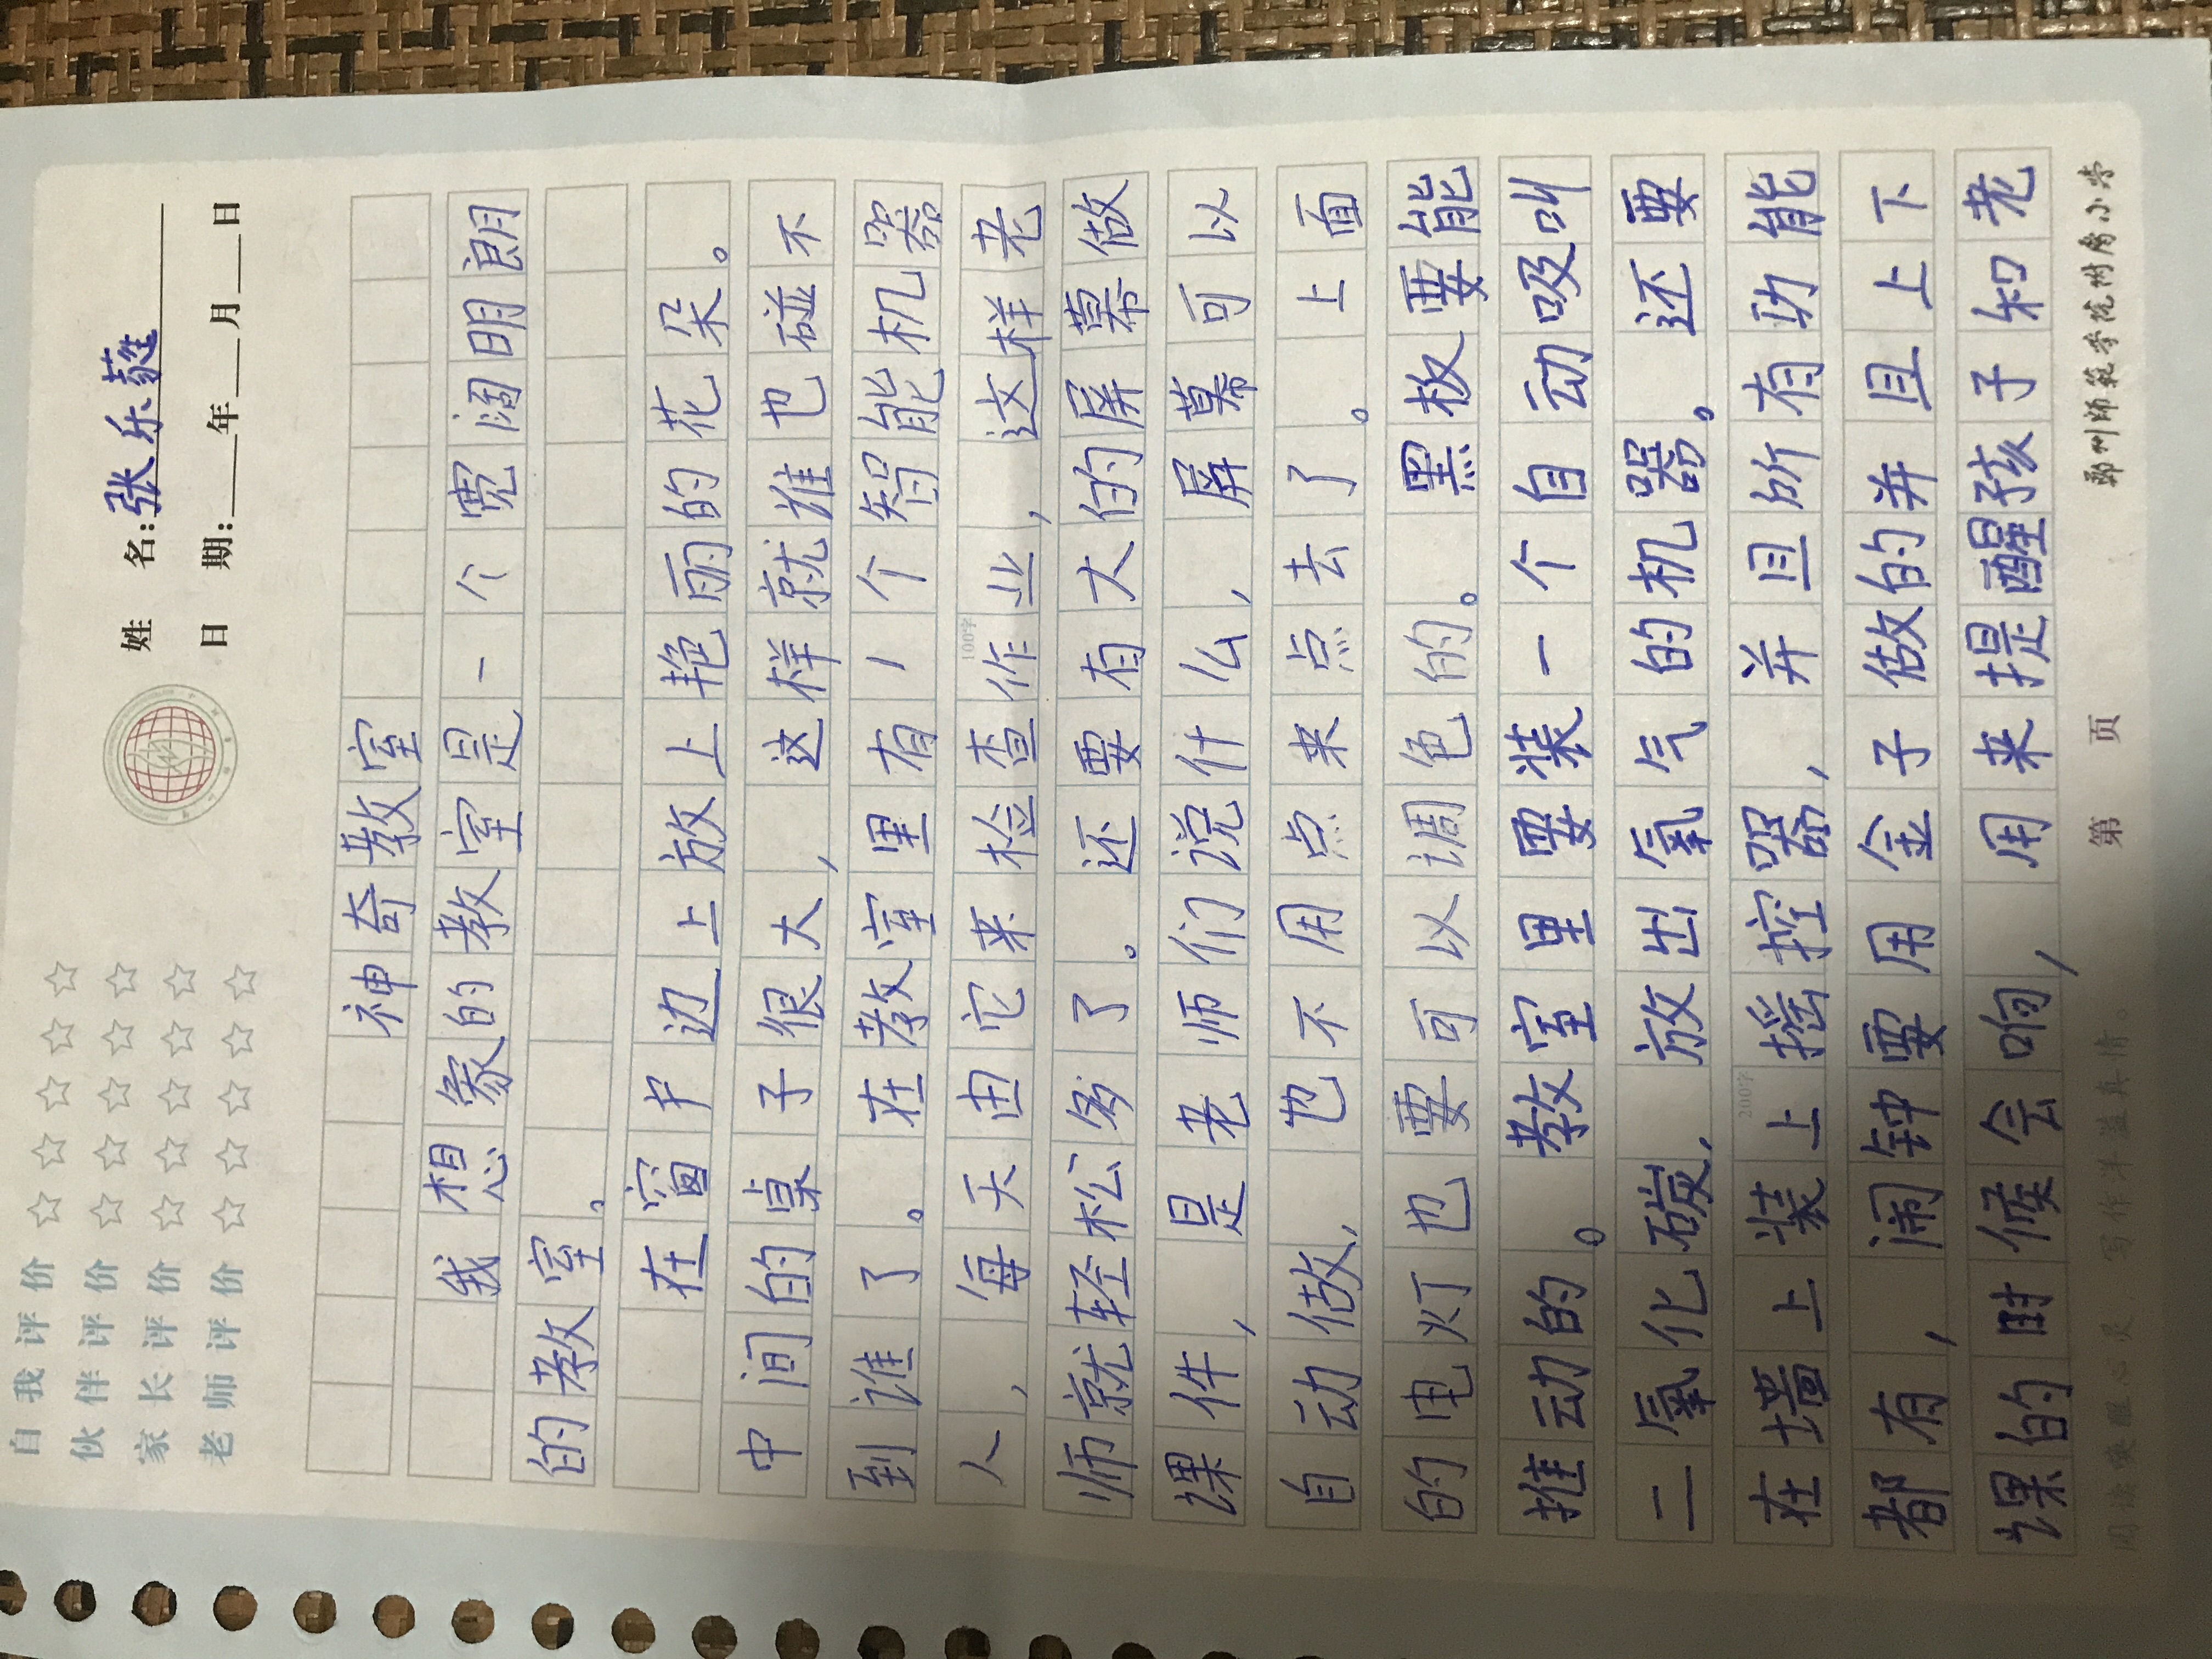 自我评价 ☆☆☆☆☆
伙伴评价 ☆☆☆☆☆
家长评价 ☆☆☆☆☆
老师评价 ☆☆☆☆☆
姓 名:张乐
日 期:____年___月___日
神奇教室
我想象的教室是一个宽阔明朗
的教室。
在窗户边上放上艳丽的花朵。
中间的桌子很大,这样就谁也碰不
到谁了。在教室里有1个智能机器
人,每天由它来检查作业,这样老
100字
师就轻松多了。还要有大的屏幕做
课件,是老师们说什么,屏幕可以
自动做,也不用点来点去了。上面
的电灯也要可以调色的。黑板要能
推动的。教室里要装一个自动吸叫
二氧化碳,放出氧气的机器。还要
在墙上装上摇控器,并且所有功能
200字
都有,闹钟要用金子做的并且上下
课的时候会响,用来提醒孩子和老
阅读唤醒心灵 写作洋溢真情。 第 页 郑州师范学院附属小学